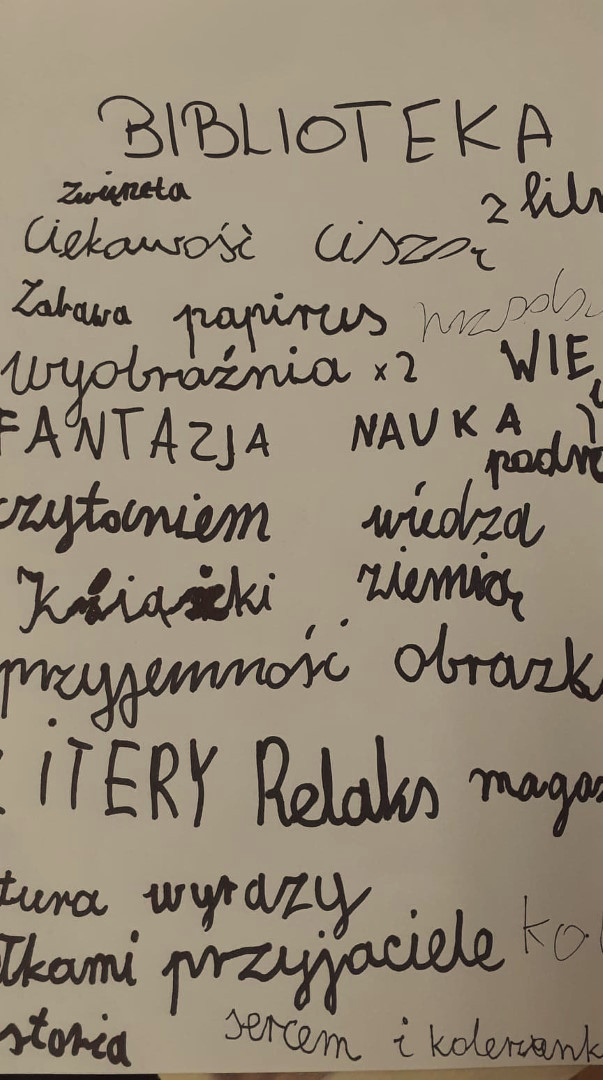 BIBLIOTEKA
zwięrzęta z film
Ciekawość ciszą
Zabawa papirus
wyobraźnia x2 WIE
FANTAZJA NAUKA
podr
czytaniem wiedza
Książki ziemią
przyjemność obrazk
LITERY Relaks magaz
tura wyrazy
łkami przyjaciele kol
storia sercem i koleżank